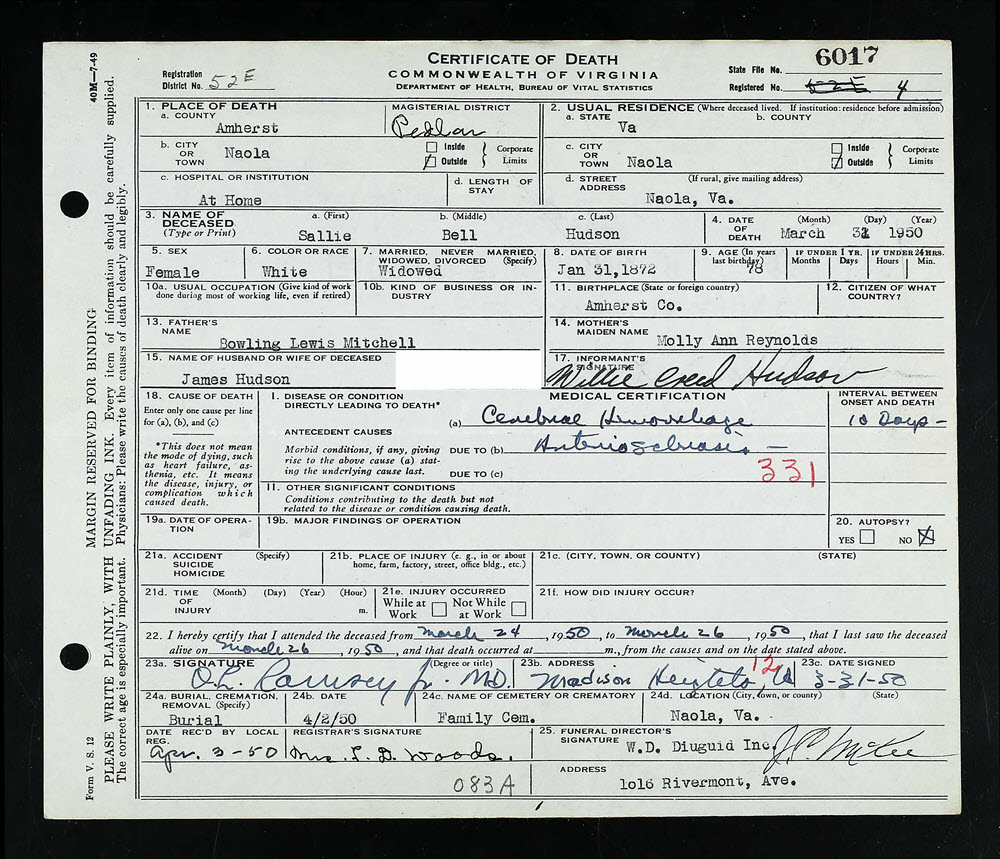 40M—7-49
CERTIFICATE OF DEATH
COMMONWEALTH OF VIRGINIA
DEPARTMENT OF HEALTH, BUREAU OF VITAL STATISTICS
Registration
District No. 52E
State File No. 6017
Registered No. 52E 4
1. PLACE OF DEATH
a. COUNTY
Amherst
MAGISTERIAL DISTRICT
Pedlar
2. USUAL RESIDENCE (Where deceased lived. If institution: residence before admission)
a. STATE
b. COUNTY
Va
b. CITY
OR
TOWN
Naola
Inside
Outside
Corporate
Limits
c. CITY
OR
TOWN
Naola
Inside
Outside
Corporate
Limits
c. HOSPITAL OR INSTITUTION
At Home
d. LENGTH OF
STAY
d. STREET
ADDRESS
(If rural, give mailing address)
Naola, Va.
3. NAME OF
DECEASED
(Type or Print)
a. (First)
b. (Middle)
c. (Last)
Sallie Bell Hudson
4. DATE
OF
DEATH
(Month) (Day) (Year)
March 31 1950
5. SEX
Female
6. COLOR OR RACE
White
7. MARRIED, NEVER MARRIED,
WIDOWED, DIVORCED (Specify)
Widowed
8. DATE OF BIRTH
Jan 31,1872
9. AGE (In years
last birthday)
78
IF UNDER 1 YR.
Months Days
IF UNDER 24 HRS.
Hours Min.
10a. USUAL OCCUPATION (Give kind of work
done during most of working life, even if retired)
10b. KIND OF BUSINESS OR IN-
DUSTRY
11. BIRTHPLACE (State or foreign country)
Amherst Co.
12. CITIZEN OF WHAT
COUNTRY?
13. FATHER'S
NAME
Bowling Lewis Mitchell
14. MOTHER'S
MAIDEN NAME
Molly Ann Reynolds
15. NAME OF HUSBAND OR WIFE OF DECEASED
James Hudson
17. INFORMANT'S
SIGNATURE
Willie Creed Hudson
18. CAUSE OF DEATH
Enter only one cause per line
for (a), (b), and (c)
*This does not mean
the mode of dying, such
as heart failure, as-
thenia, etc. It means
the disease, injury, or
complication which
caused death.
MEDICAL CERTIFICATION
I. DISEASE OR CONDITION
DIRECTLY LEADING TO DEATH*
(a) Cerebral Hemorrhage
INTERVAL BETWEEN
ONSET AND DEATH
10 Days -
ANTECEDENT CAUSES
Morbid conditions, if any, giving
rise to the above cause (a) stat-
ing the underlying cause last.
DUE TO (b) Arteriosclerosis —
DUE TO (c)
331
II. OTHER SIGNIFICANT CONDITIONS
Conditions contributing to the death but not
related to the disease or condition causing death.
19a. DATE OF OPERA-
TION
19b. MAJOR FINDINGS OF OPERATION
20. AUTOPSY?
YES NO
21a. ACCIDENT (Specify)
SUICIDE
HOMICIDE
21b. PLACE OF INJURY (e. g., in or about
home, farm, factory, street, office bldg., etc.)
21c. (CITY, TOWN, OR COUNTY) (STATE)
21d. TIME (Month) (Day) (Year) (Hour)
OF
INJURY m.
21e. INJURY OCCURRED
While at
Work
Not While
at Work
21f. HOW DID INJURY OCCUR?
22. I hereby certify that I attended the deceased from March 24, 1950, to March 26, 1950, that I last saw the deceased
alive on March 26, 1950, and that death occurred at m., from the causes and on the date stated above.
23a. SIGNATURE (Degree or title)
O.L. Ramsey Jr. M.D.
23b. ADDRESS
Madison Heights, Va
12
23c. DATE SIGNED
3-31-50
24a. BURIAL, CREMATION,
REMOVAL (Specify)
Burial
24b. DATE
4/2/50
24c. NAME OF CEMETERY OR CREMATORY
Family Cem.
24d. LOCATION (City, town, or county) (State)
Naola, Va.
DATE REC'D BY LOCAL
REG.
Apr. 3-50
REGISTRAR'S SIGNATURE
Mrs. L. D. Woods.
25. FUNERAL DIRECTOR'S
SIGNATURE
W.D. Diuguid Inc. J.P. McKee
083A
ADDRESS
1016 Rivermont, Ave.
MARGIN RESERVED FOR BINDING
PLEASE WRITE PLAINLY, WITH UNFADING INK. Every item of information should be carefully supplied.
The correct age is especially important. Physicians: Please write the causes of death clearly and legibly.
Form V. S. 12